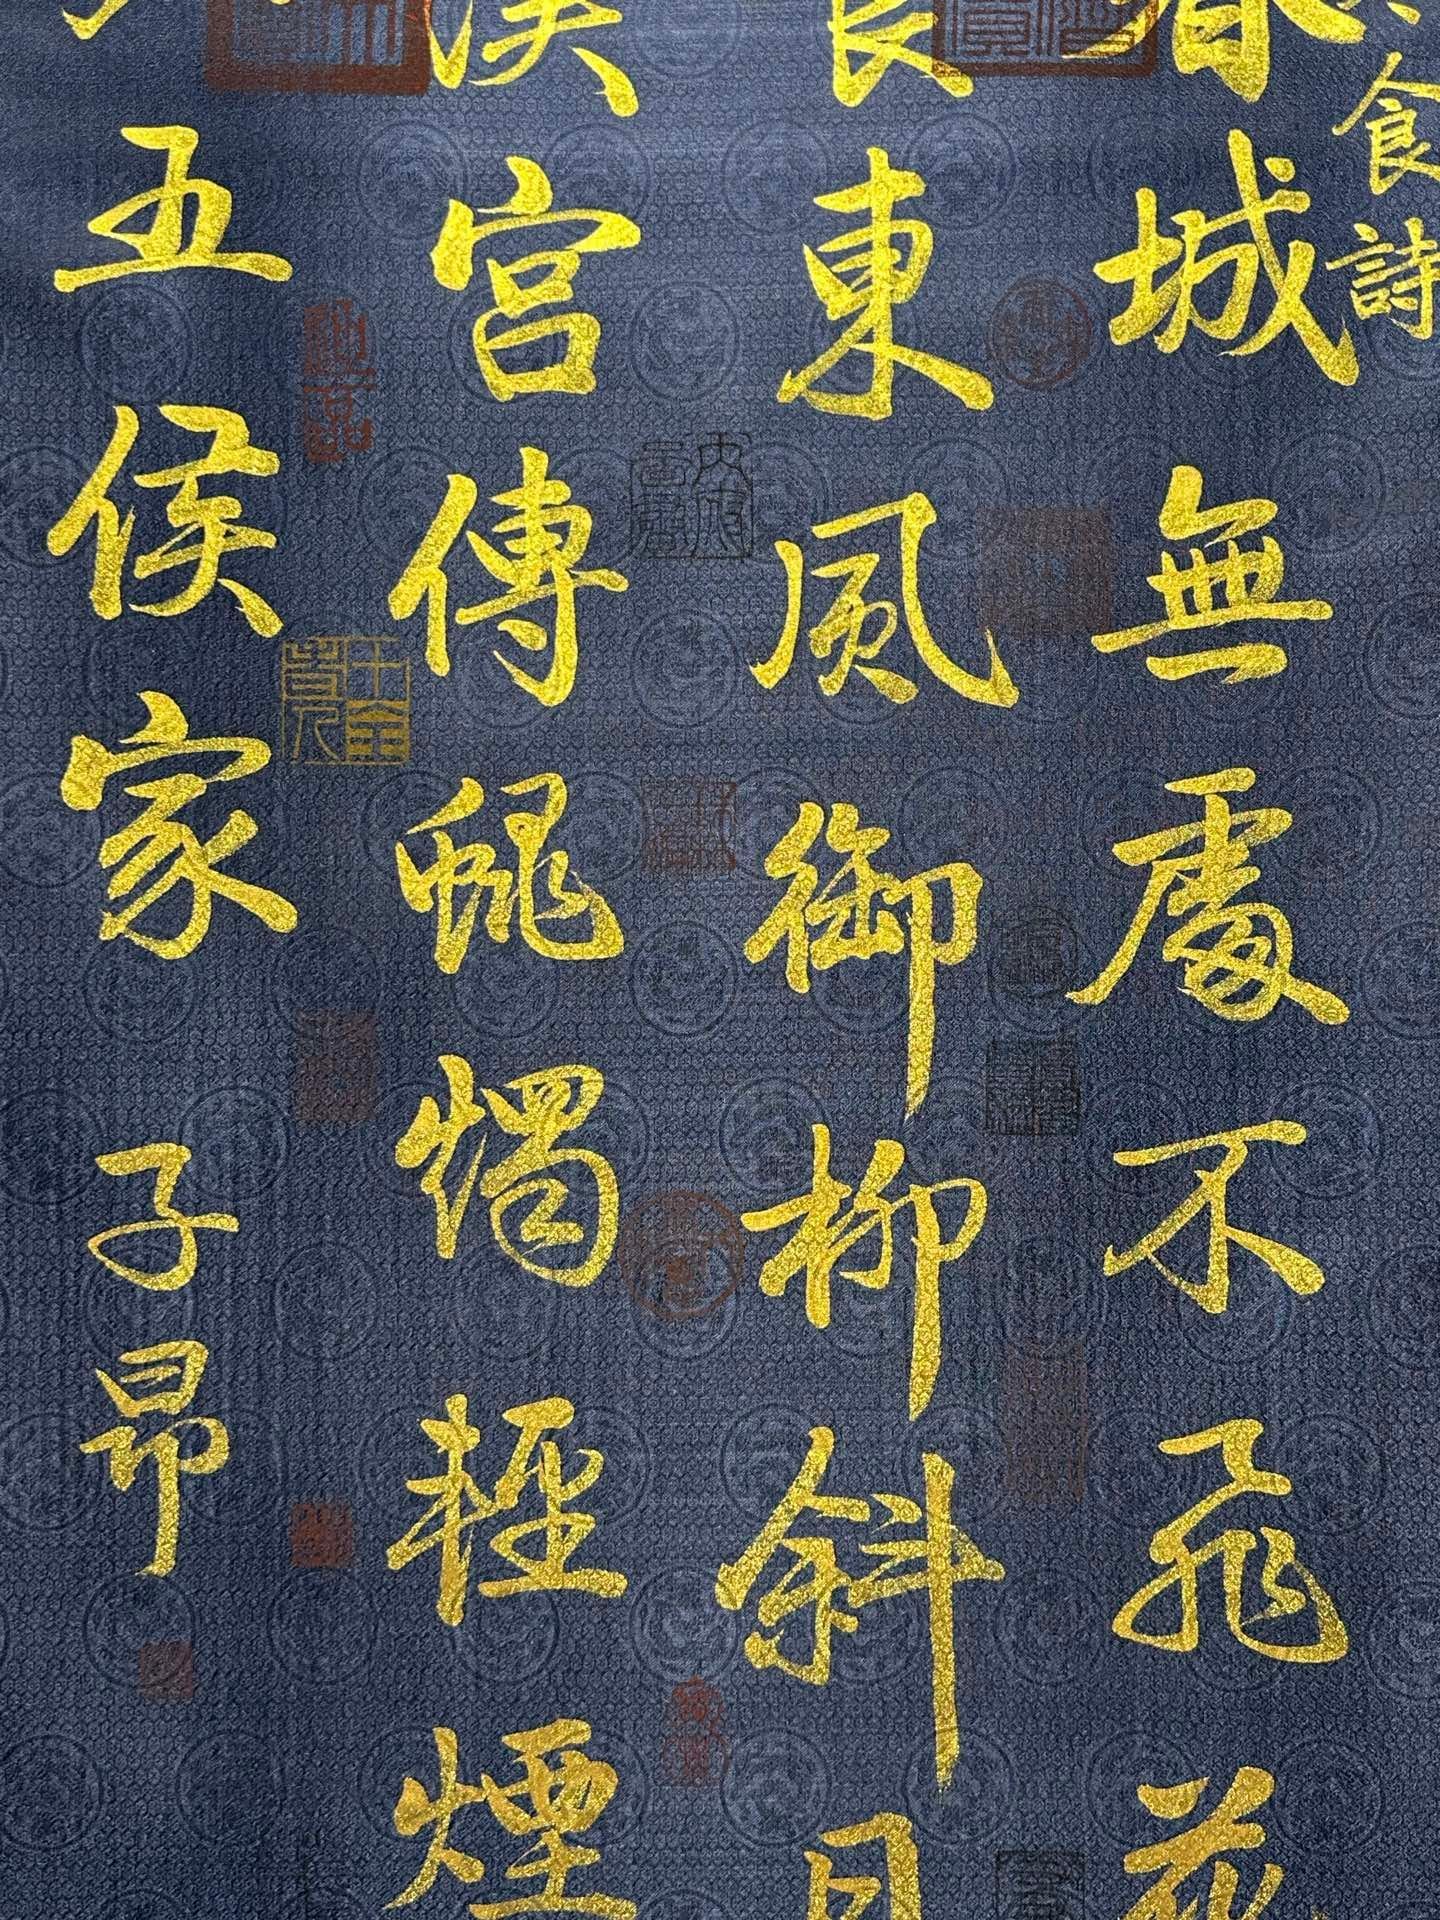 食詩
春城無處不飛花
食東風御柳斜日
漢宮傳蠟燭輕煙
五侯家
子昂